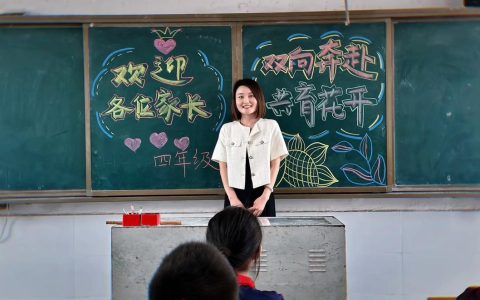 欢迎
各位家长
四年级
双向奔赴
共育花开